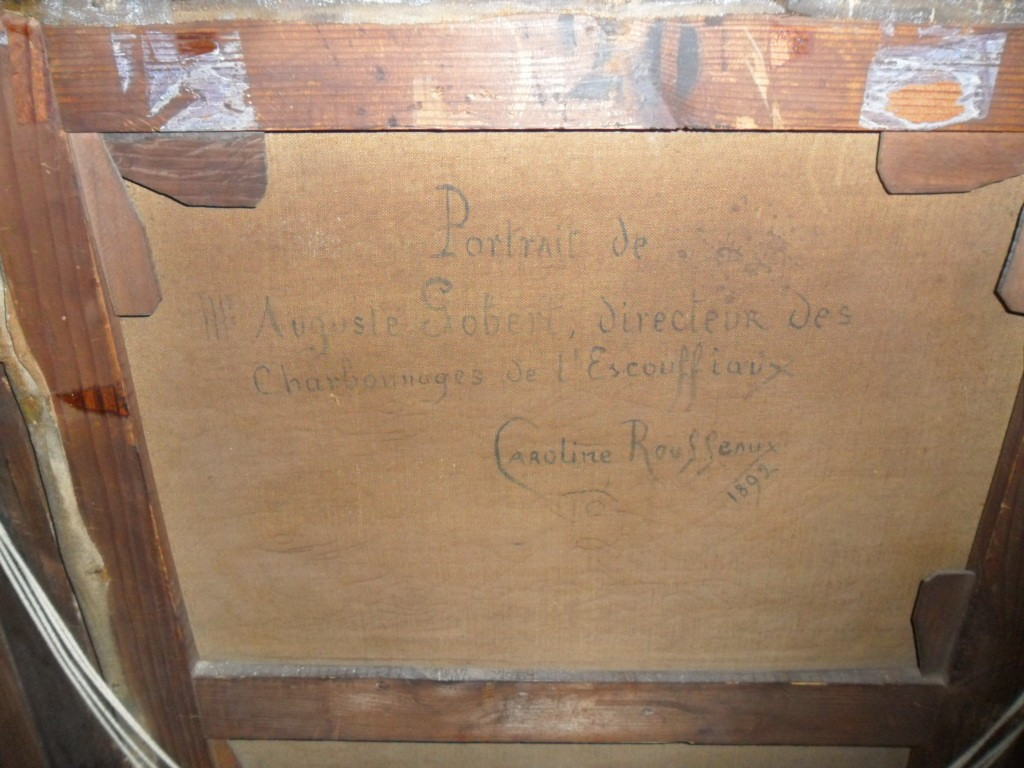 20
Portrait de
Mr Auguste Gobert, directeur des
Charbonnages de l'Escouffiaux
Caroline Rousseaux
1892